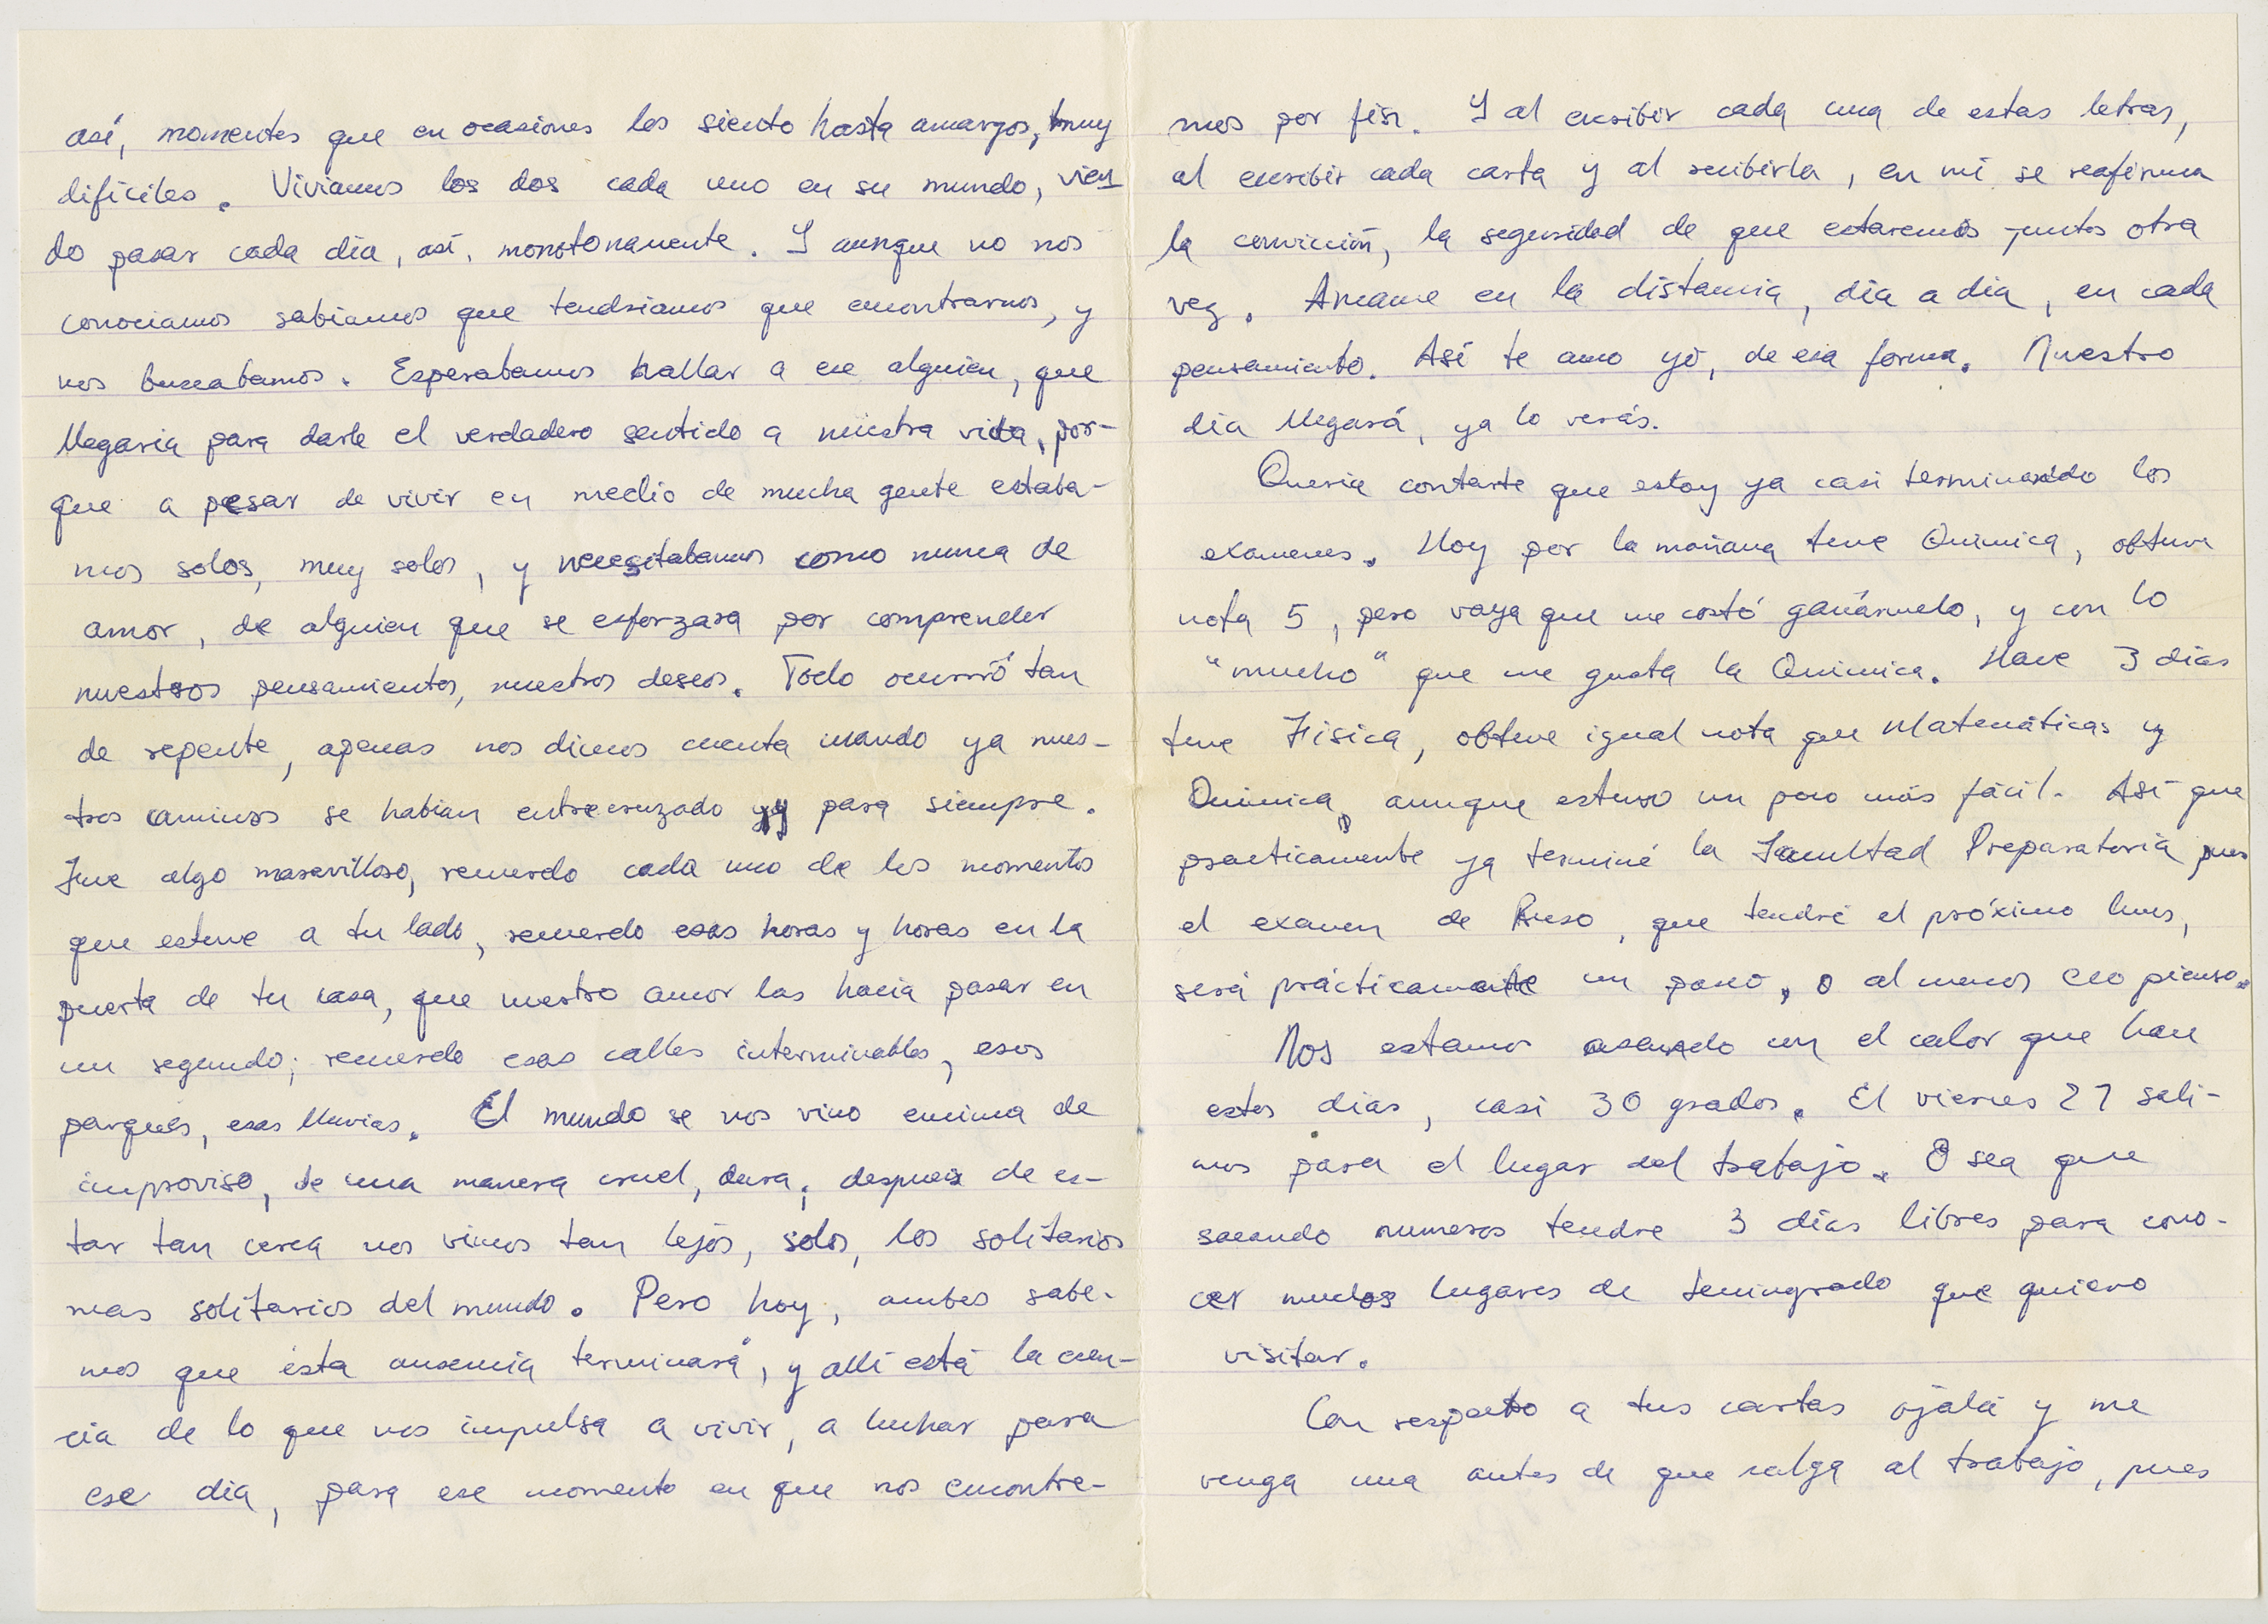 así, momentos que en ocasiones los siento hasta amargos, muy
difíciles. Vivíamos los dos cada uno en su mundo, vien
do pasar cada día, así, monotonamente. Y aunque no nos
conociamos sabiamos que tendriamos que encontrarnos, y
nos buscabamos. Esperabamos hallar a ese alguien, que
llegaria para darle el verdadero sentido a nuestra vida, por-
que a pesar de vivir en medio de mucha gente estaba-
mos solos, muy solos, y necesitabamos como nunca de
amor, de alguien que se esforzara por comprender
nuestros pensamientos, nuestros deseos. Todo ocurrió tan
de repente, apenas nos dimos cuenta cuando ya nues-
tros caminos se habían entrecruzado y para siempre.
Fue algo maravilloso, recuerdo cada uno de los momentos
que estuve a tu lado, recuerdo esas horas y horas en la
puerta de tu casa, que nuestro amor las hacia pasar en
un segundo; recuerdo esas calles interminables, esos
parques, esas lluvias. El mundo se nos vino encima de
improviso, de una manera cruel, dura, despues de es-
tar tan cerca nos vimos tan lejos, solos, los solitarios
mas solitarios del mundo. Pero hoy, ambos sabe-
mos que ésta ausencia terminará, y allí está la esen-
cia de lo que nos impulsa a vivir, a luchar para
ese día, para ese momento en que nos encontre-
mos por fin. Y al escribir cada una de estas letras,
al escribir cada carta y al recibirla, en mí se reafirma
la convicción, la seguridad de que estaremos juntos otra
vez. Amame en la distancia, día a día, en cada
pensamiento. Así te amo yo, de esa forma. Nuestro
día llegará, ya lo verás.
Quería contarte que estoy ya casi terminando los
examenes. Hoy por la mañana tuve Química, obtuve
nota 5, pero vaya que me costó ganármelo, y con lo
"mucho" que me gusta la Química. Hace 3 días
tuve Física, obtuve igual nota que Matemáticas y
Química, aunque estuvo un poco más fácil. Así que
practicamente ya terminé la Facultad Preparatoria pues
el examen de Ruso, que tendré el próximo lunes,
será prácticamente un paseo, o al menos eso pienso.
Nos estamos asando con el calor que hace
estos días, casi 30 grados. El viernes 27 sali-
mos para el lugar del trabajo. O sea que
sacando numeros tendre 3 días libres para cono-
cer muchos lugares de Leningrado que quiero
visitar.
Con respecto a tus cartas ojalá y me
venga una antes de que salga al trabajo, pues